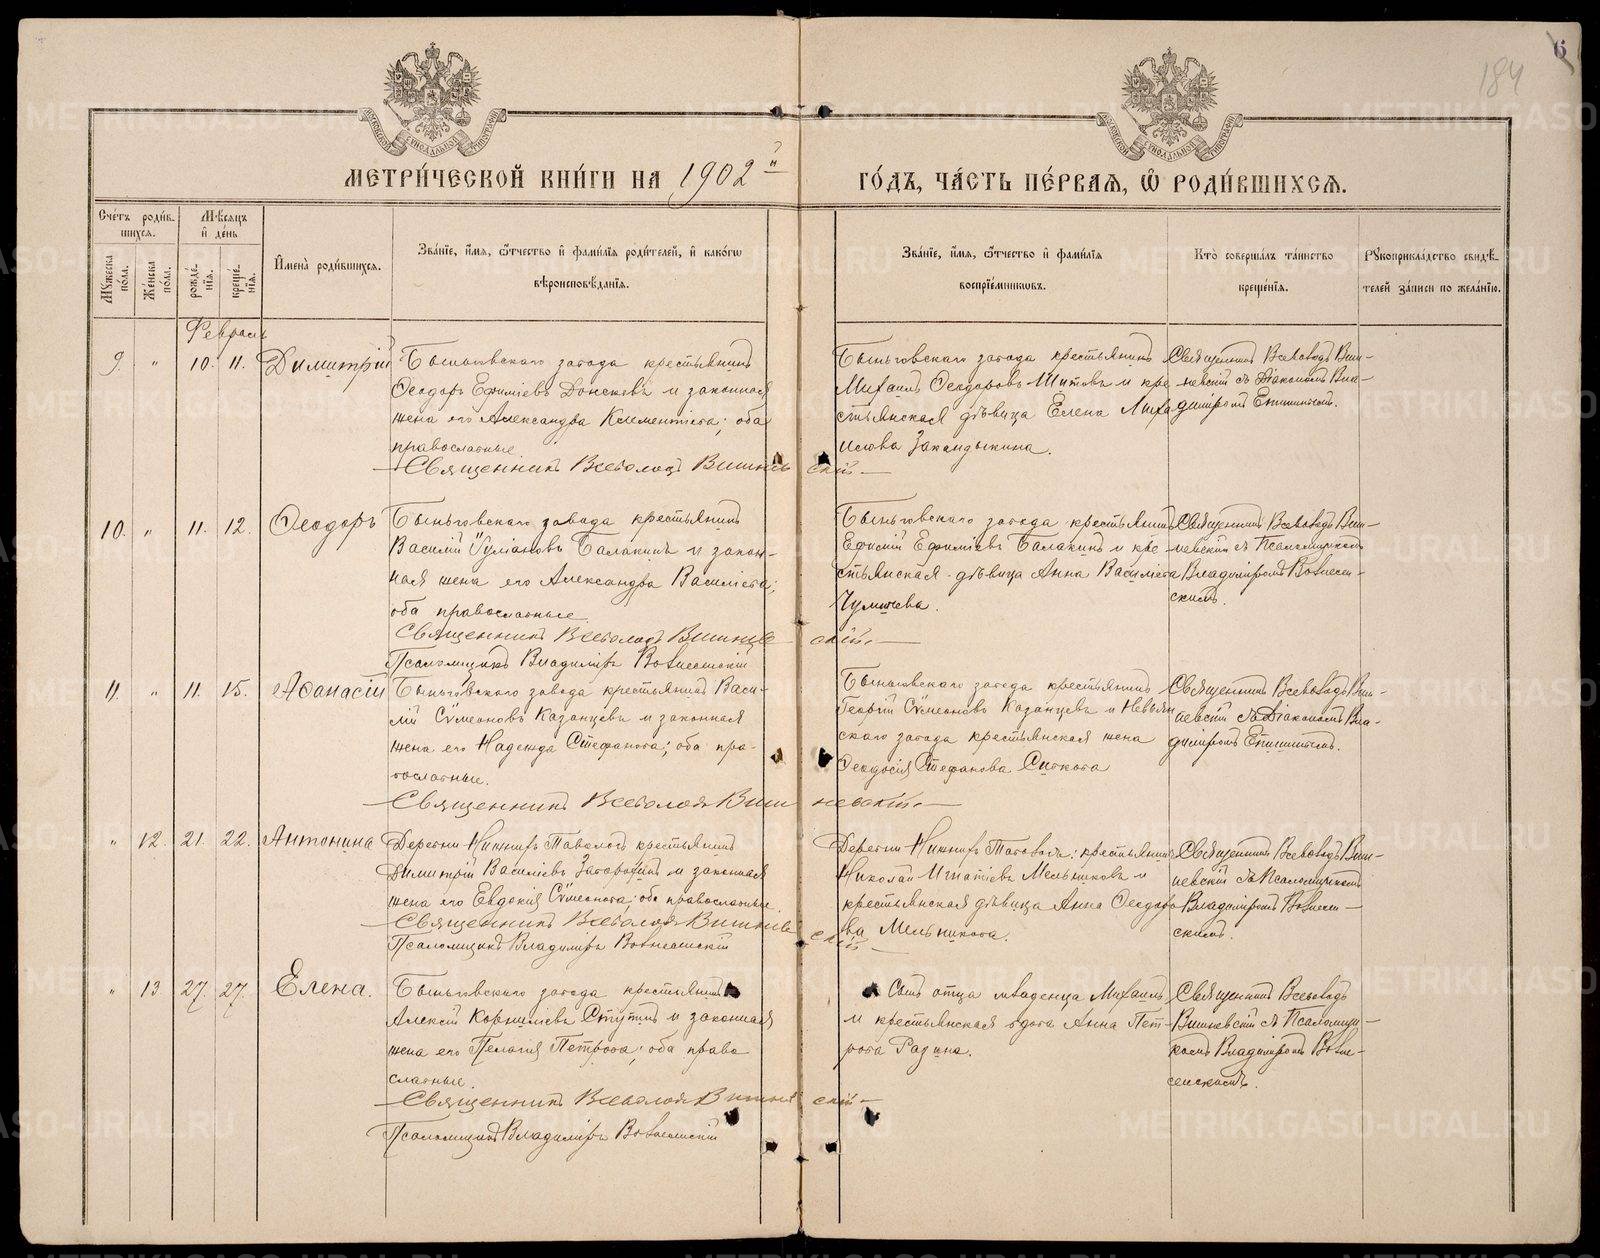 6
184
МЕТРИ́ЧЕСКОЙ КНИ́ГИ НА 1902 й
ГО́ДЪ, ЧА́СТЬ ПЕ́РВАЯ, Ѡ҆ РОДИ́ВШИХСЯ.
Сче́тъ роди́в-
шихся.
Мꙋжеска по́ла.
Же́нска по́ла.
Мѣ́сяцъ
и҆ де́нь
рожде́-
нїя.
креще́-
нїя.
И҆мена̀ роди́вшихся.
Зва́нїе, и҆́мя, ѻ҆́тчество и҆ фами́лїя роди́телей, и҆ како́гѡ
вѣроисповѣ́данїя.
Зва́нїе, и҆́мя, ѻ҆́тчество и҆ фами́лїя
воспрїе́мникѡвъ.
Кто̀ соверша́лъ та́инство
креще́нїя.
Рꙋкоприкла́дство свидѣ́-
телей за́писи по жела́нїю.
Февраль
9. " 10. 11. Димитрій
Быньговскаго завода крестьянинъ
Ѳеодоръ Ефиміевъ Донсковъ и законная
жена его Александра Климентіева; оба
православные
Священникъ Всеволодъ Вишневскій
Быньговскаго завода крестьянинъ
Михаилъ Ѳеодоровъ Шитовъ и кре
стьянская дѣвица Елена Миха
илова
Священникъ Всеволодъ Виш-
невскій съ Діакономъ Вла-
диміромъ
10. " 11. 12. Ѳеодоръ
Быньговскаго завода крестьянинъ
Василій Іуліановъ Балакинъ и закон-
ная жена его Александра Василіева;
оба православные
Священникъ Всеволодъ Вишневскій
Псаломщикъ Владиміръ Вознесенскій
Быньговскаго завода крестьянинъ
Ефимій Ефиміевъ Балакинъ и кре
стьянская дѣвица Анна Василіева
Священникъ Всеволодъ Виш-
невскій съ Псаломщикомъ
Владиміромъ Вознесен-
скимъ.
11. " 11. 15. Аѳанасій
Быньговскаго завода крестьянинъ Васи-
лій Сѵмеоновъ Казанцевъ и законная
жена его Надежда Стефанова; оба пра-
вославные.
Священникъ Всеволодъ Вишневскій
Быньговскаго завода крестьянинъ
Георгій Сѵмеоновъ Казанцевъ и Невьян
скаго завода крестьянская жена
Ѳеодосія Стефанова Ситкова
Священникъ Всеволодъ Виш-
невскій съ Діакономъ Вла-
диміромъ
" 12. 21. 22. Антонина
Деревни Нижнихъ Тавологъ крестьянинъ
Димитрій Василіевъ и законная
жена его Евдокія Сѵмеонова; оба православные
Священникъ Всеволодъ Вишневскій
Псаломщикъ Владиміръ Вознесенскій
Деревни Нижнихъ Тавологъ: крестьянинъ
Николай Игнатіевъ Мельниковъ и
крестьянская дѣвица Анна Ѳеодоро
ва Мельникова.
Священникъ Всеволодъ Виш-
невскій съ Псаломщикомъ
Владиміромъ Вознесен-
скимъ.
" 13. 27. 27. Елена.
Быньговскаго завода крестьянинъ
Алексій Корниліевъ Ступинъ и законная
жена его Пелагія Петрова; оба право
славные.
Священникъ Всеволодъ Вишневскій
Псаломщикъ Владиміръ Вознесенскій
Сынъ отца младенца Михаилъ
и крестьянская вдова Анна Пет-
рова Разина.
Священникъ Всеволодъ
Вишневскій съ Псаломщи-
комъ Владиміромъ Возне-
сенскимъ.
METRIKI.GASO-URAL.RU